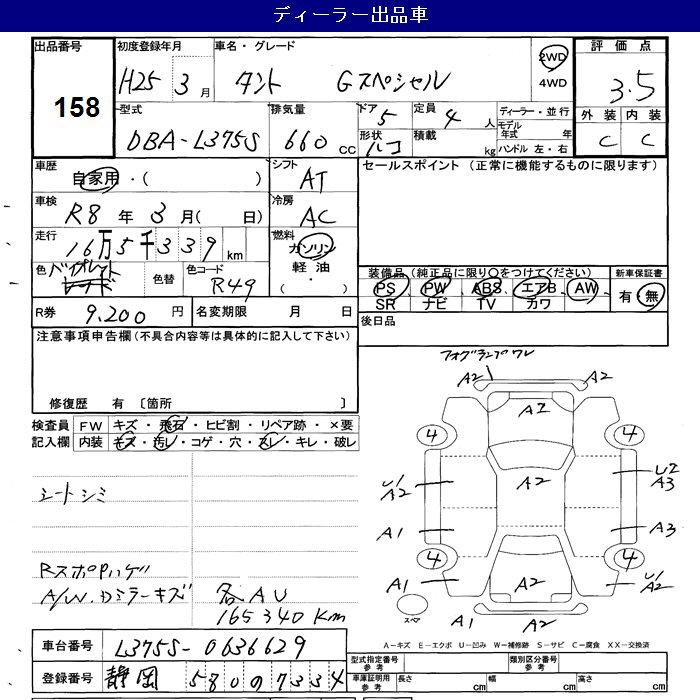 ディーラー出品車
出品番号 初度登録年月 車名・グレード 2WD 評価点
158 H25 3月 タント Gスペシャル 4WD 3.5
型式 排気量 ドア 定員 ディーラー・並行 外装 内装
DBA-L375S 660 CC 5 4人 モデル年式 年 C C
形状 ハコ 積載 kg ハンドル 左・右
車歴 自家用・( ) シフト AT セールスポイント (正常に機能するものに限ります)
車検 R8年3月( 日) 冷房 AC
走行 16万5千339km 燃料 ガソリン
軽油
( ・ )
色 色替 色コード R49
装備品(純正品に限り○をつけてください) 新車保証書
PS PW ABS エアB AW 有・無
SR ナビ TV カワ
R券 9,200円 名変期限 月 日 後日品
注意事項申告欄(不具合内容等は具体的に記入して下さい)
修復歴 有 〔箇所 〕
検査員記入欄 FW キズ・飛石・ヒビ割・リペア跡・×要
内装 キズ・汚レ・コゲ・穴・スレ・キレ・破レ
シートシミ
RスポPハゲ
A/W.Dミラーキズ 各AU
165340Km
フォグランプワレ
A2 A2
A2
4 4
U1 A2 A2 U2 A3
A1 A3
4 4
A1 A2 U1 A2
スペア A1 A2
A-キズ E-エクボ U-凹み W-補修跡 S-サビ C-腐食 XX-交換済
車台番号 L375S-0636629 型式指定番号 参考 類別区分番号 参考
登録番号 静岡 580 の 7334 車庫証明用 参考 長さ cm 幅 cm 高さ cm